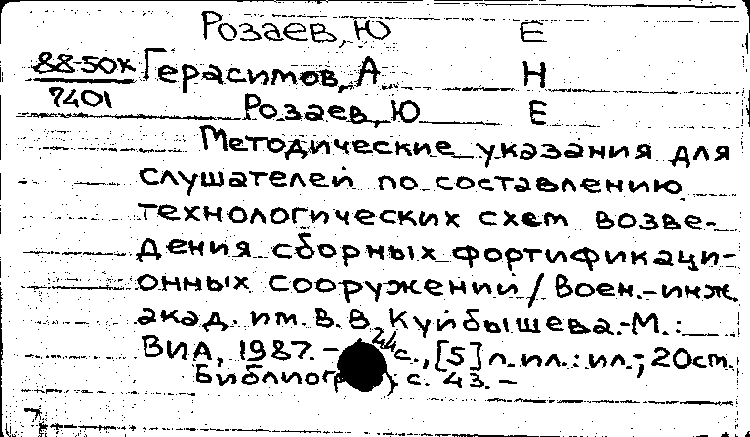 Розаев, Ю Е
88-50к Герасимов, А Н
7401
Розаев, Ю Е
Методические указания для
слушателей по составлению
технологических схем возве-
дения сборных фортификаци-
онных сооружений / Воен.-инж.
акад. им. В.В. Куйбышева.-М.:
ВИА, 1987. - 44 с., [5] л. ил.: ил.; 20 см.
с. 43. -